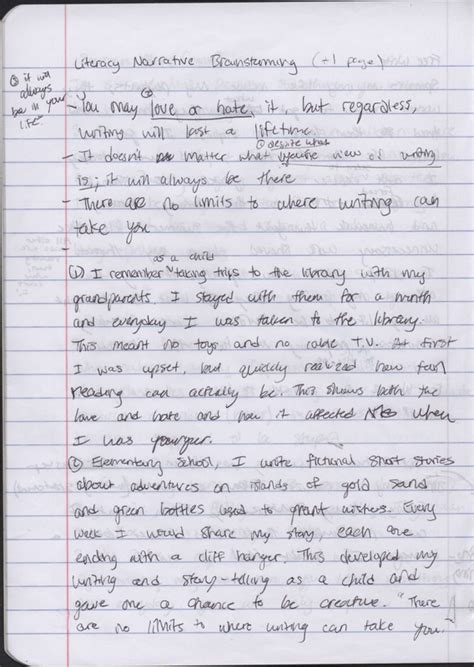 Literacy Narrative Brainstorming (+1 page)
② it will
always
be in your
life
①
- You may love or hate it, but regardless,
writing will last a lifetime
② despite what
- It doesn't matter what your view of writing
is; it will always be there
- There are no limits to where writing can
take you
as a child
① I remember taking trips to the library with my
grandparents. I stayed with them for a month
and everyday I was taken to the library.
This meant no toys and no cable T.V. At first
I was upset, but quickly realized how fun
reading can actually be. This shows both the
love and hate and how it affected me when
I was younger.
② Elementary School, I wrote fictional short stories
about adventures on islands of gold sand
and green bottles used to grant wishes. Every
week I would share my story, each one
ending with a cliff hanger. This developed my
writing and story-telling as a child and
gave me a chance to be creative. "There
are no limits to where writing can take you.